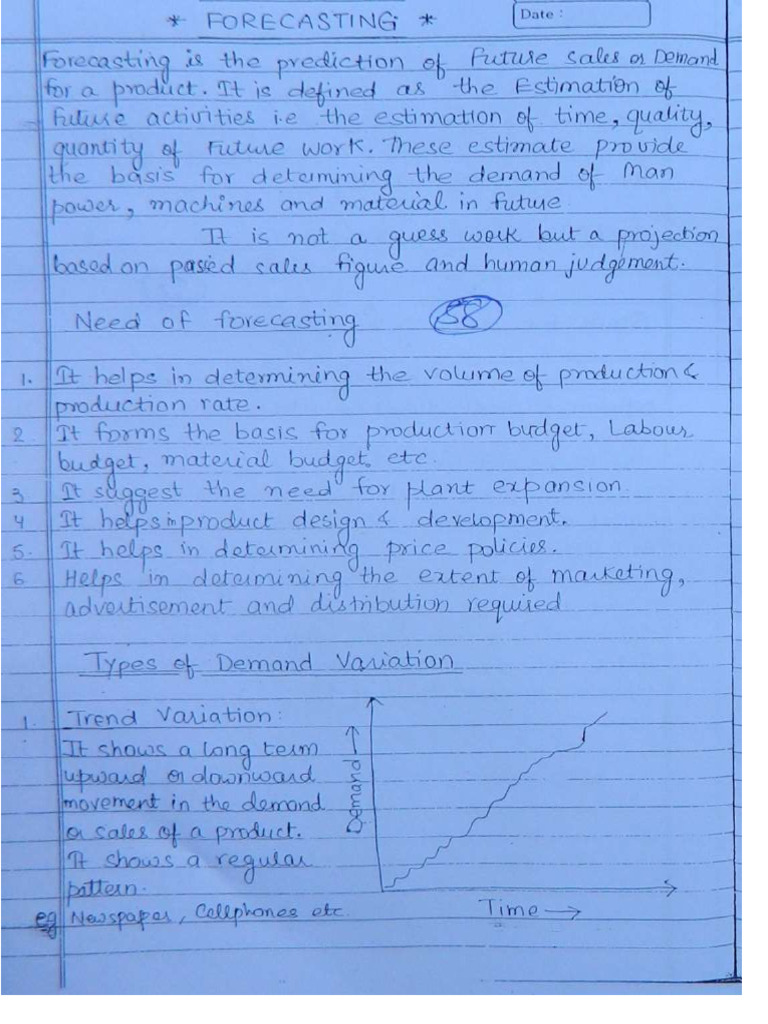 * FORECASTING *
Date :
Forecasting is the prediction of future sales or Demand
for a product. It is defined as the Estimation of
future activities i.e the estimation of time, quality,
quantity of future work. These estimate provide
the basis for determining the demand of Man
power, machines and material in future
It is not a guess work but a projection
based on passed sales figure and human judgement.
Need of forecasting
58
1. It helps in determining the volume of production &
production rate.
2 It forms the basis for production budget, Labour
budget, material budget etc.
3 It suggest the need for plant expansion.
4 It helps in product design & development.
5. It helps in determining price policies.
6 Helps in determining the extent of marketing,
advertisement and distribution required
Types of Demand Variation
1. Trend Variation:
It shows a long term
upward or downward
movement in the demand
or sales of a product.
It shows a regular
pattern.
eg Newspaper, Cellphones etc.
Demand →
Time →